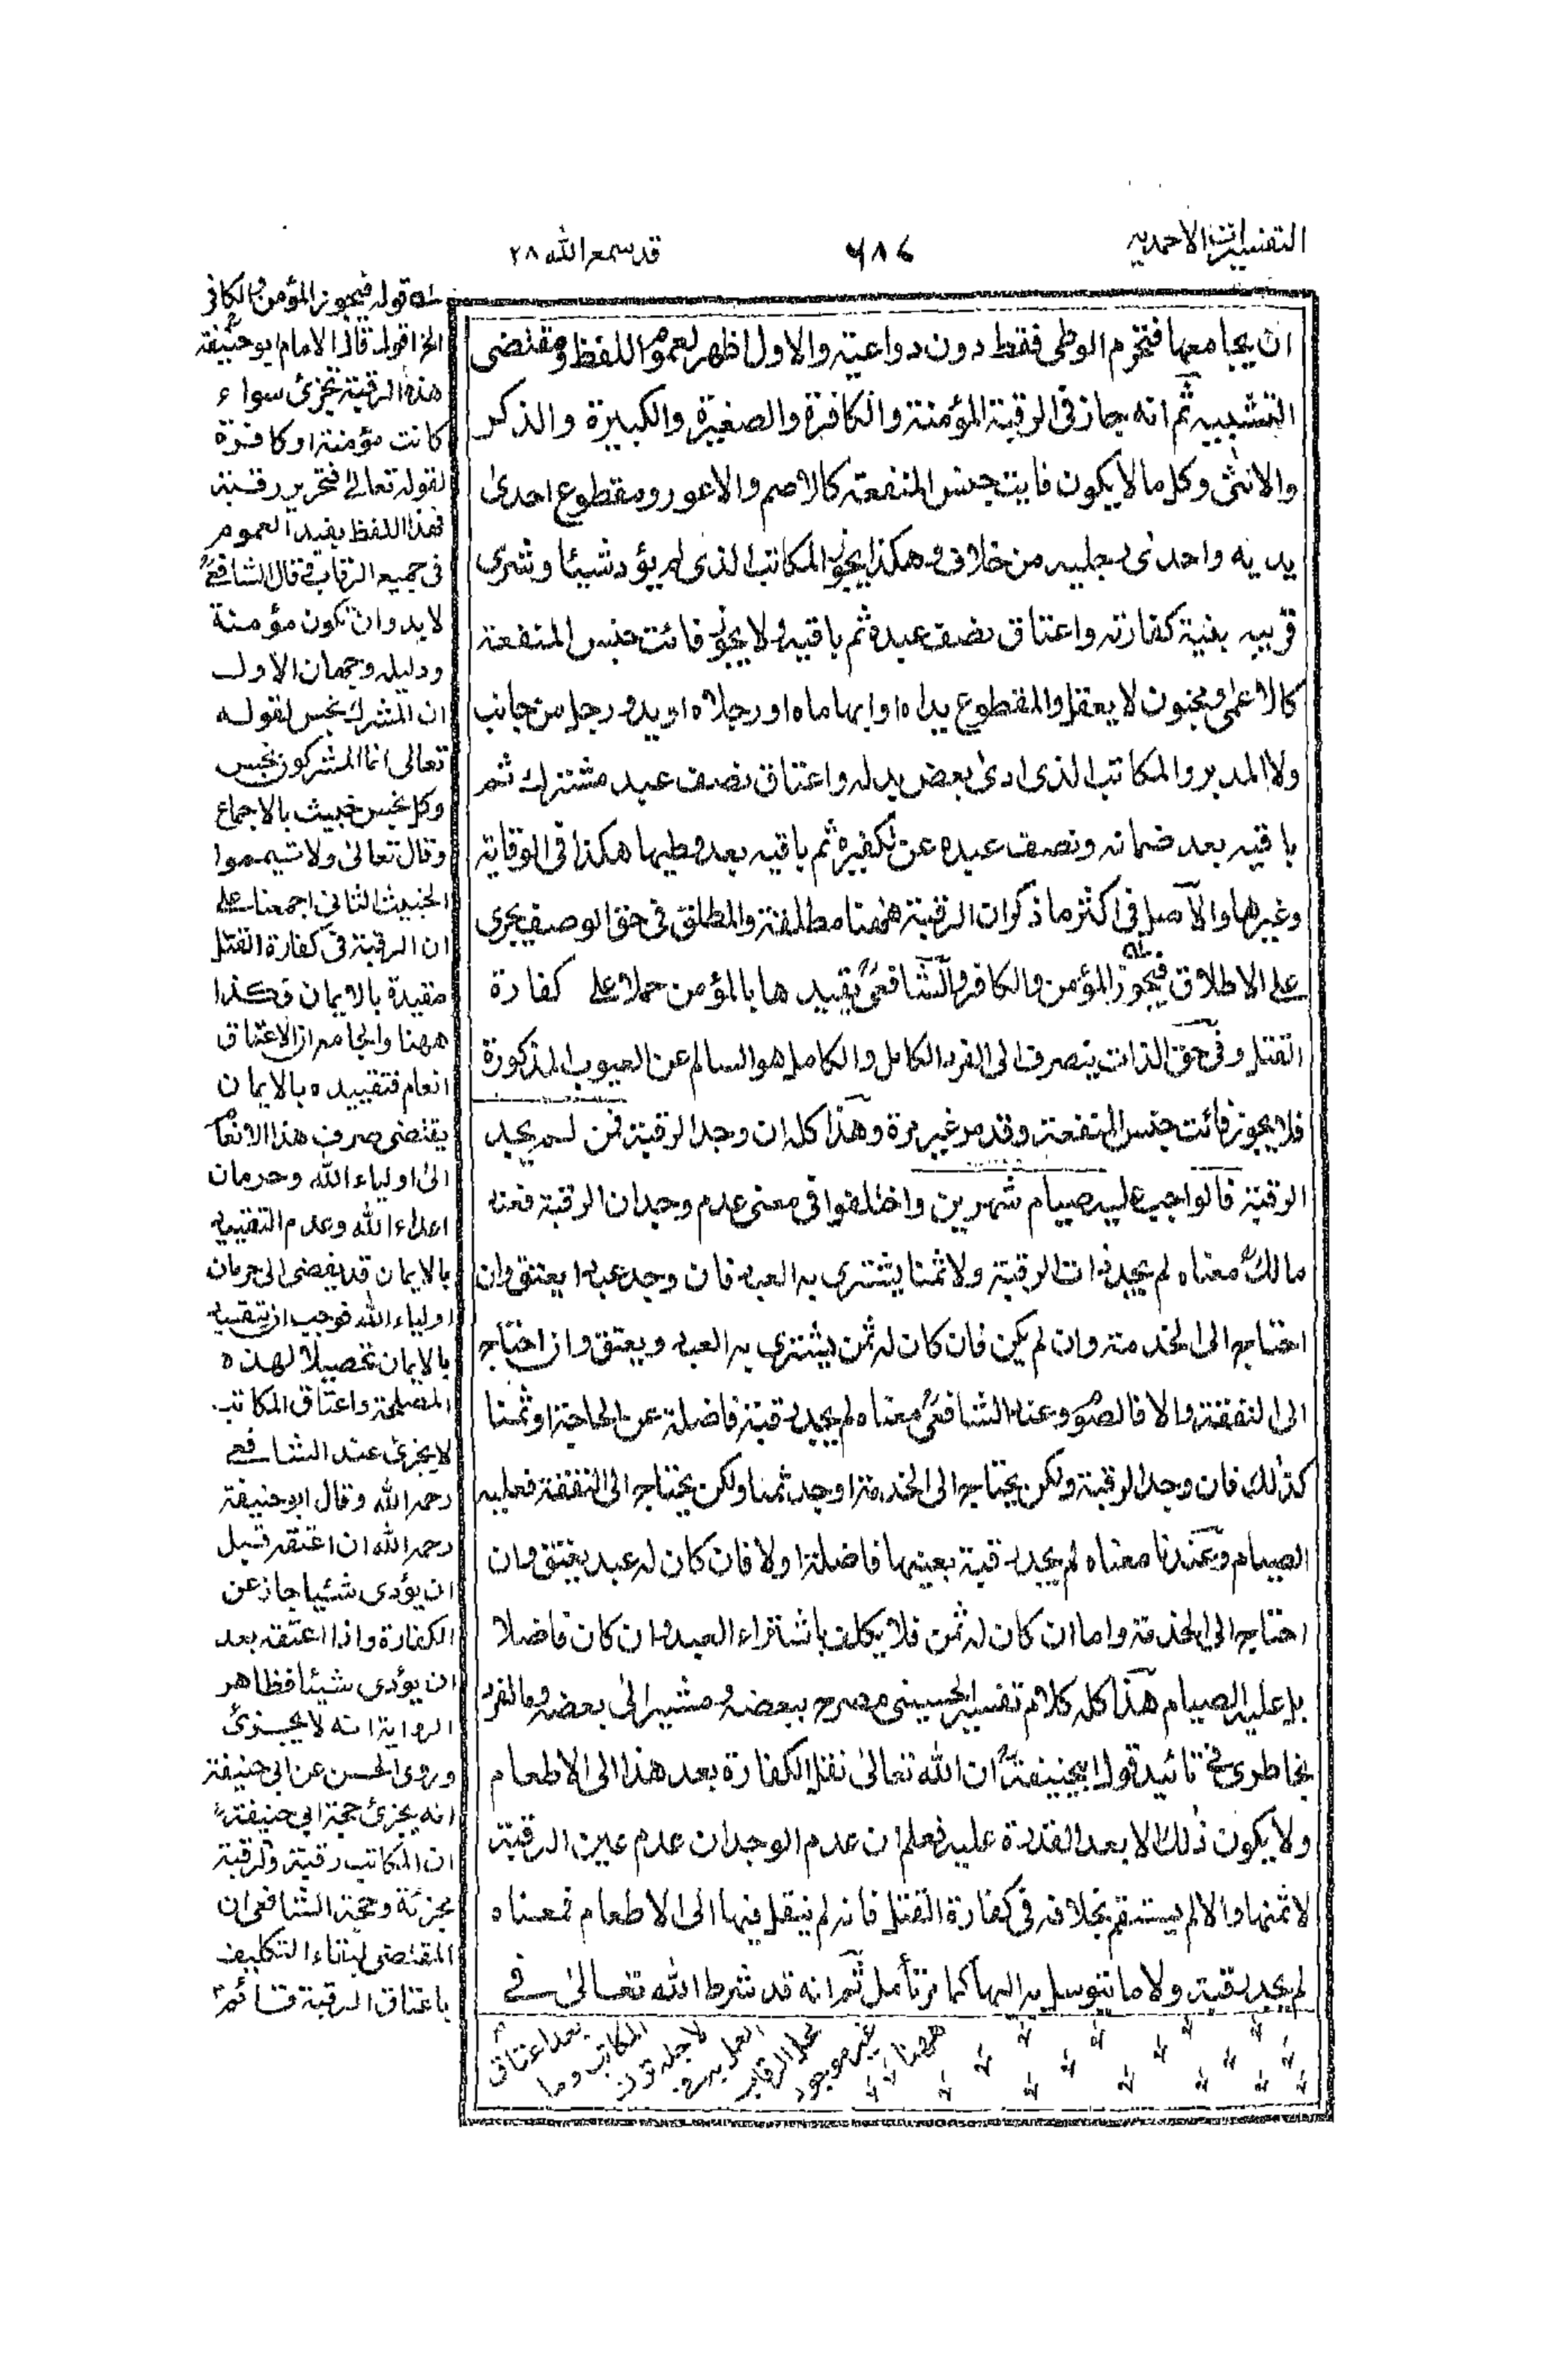 التفسيرات الاحمديه
٦٨٦
قد سمع الله ٢٨
ان يجامعها فتحرم الوطى فقط دون دواعيته والاول اظهر لعموم اللفظ ومقتضى
التشبيه ثم انه جاز فى الرقبة المؤمنة والكافرة والصغيرة والكبيرة والذكر
والانثى وكل ما لا يكون فايت جنس المنفعة كالاصم والاعور ومقطوع احدى
يديه واحدى رجليه من خلاف وهكذا يجوز المكاتب الذى لم يؤد شيئا وشرى
قريبه بنية كفارته واعتاق نصف عبده ثم باقيه ولا يجوز فائت جنس المنفعة
كالاعمى ومجنون لا يعقل والمقطوع يداه او ابهاماه او رجلاه او يد ورجل من جانب
ولا المدبر والمكاتب الذى ادى بعض بدله واعتاق نصف عبد مشترك ثم
باقيه بعد ضمانه ونصف عبده عن تكفيره ثم باقيه بعد وطيها هكذا فى الوقاية
وغيرها والاصل فى اكثر ما ذكر ان الرقبة ههنا مطلقة والمطلق فى حق الوصف يجرى
على الاطلاق فيجوز المؤمن والكافر والشافعى يقيدها بالمؤمن حملا على كفارة
القتل وفى حق الذات ينصرف الى الفرد الكامل والكامل هو السالم عن العيوب المذكورة
فلا يجوز فائت جنس المنفعة وقد مر غير مرة وهذا كله ان وجد الرقبة فمن لم يجد
الرقبة فالواجب عليه صيام شهرين واختلفوا فى معنى عدم وجدان الرقبة فعند
مالك معناه لم يجد ذات الرقبة ولا ثمنا يشترى به العبد فان وجد عبدا يعتق وان
احتاج الى الخدمة وان لم يكن فان كان له ثمن يشترى به العبد ويعتق وان احتاج
الى النفقة والا فالصوم وعند الشافعى معناه لم يجد رقبة فاضلة عن الحاجة او ثمنا
كذلك فان وجد الرقبة ولكن يحتاج الى الخدمة او وجد ثمنا ولكن يحتاج الى النفقة فعليه
الصيام وعندنا معناه لم يجد رقبة بعينها فاضلة اولا فان كان له عبد يعتق وان
احتاج الى الخدمة واما ان كان له ثمن فلا يكلف باشتراء العبد وان كان فاضلا
بل عليه الصيام هذا كله كلام تفسير الحسينى مصرح ببعضه ومشير الى بعضه وما تفرد
بخاطرى فى تائيد قول ابيحنيفة ان الله تعالى نقل الكفارة بعد هذا الى الاطعام
ولا يكون ذلك الا بعد القدرة عليه فعلم ان عدم الوجدان عدم عين الرقبة
لا ثمنها والا لم يستقم بخلافه فى كفارة القتل فانه لم ينقل فيها الى الاطعام فمعناه
لم يجد رقبة ولا ما يتوسل به اليها كما مر تأمل ثم انه قد شرط الله تعالى فى
له قوله فيجوز المؤمن والكافر
الخ اقول قال الامام ابو حنيفة
هذه الرقبة تجزئ سواء
كانت مؤمنة او كافرة
لقوله تعالى فتحرير رقبة
فهذا اللفظ يفيد العموم
فى جميع الرقاب وقال الشافعى
لا بد وان تكون مؤمنة
ودليله وجهان الاول
ان المشرك نجس لقوله
تعالى انما المشركون نجس
وكل نجس خبيث بالاجماع
وقال تعالى ولا تيمموا
الخبيث الثانى اجمعنا على
ان الرقبة فى كفارة القتل
مقيدة بالايمان فكذا
ههنا والجامع ان الاعتاق
انعام فتقييده بالايمان
يقتضى صرف هذا الانعام
الى اولياء الله وحرمان
اعداء الله وعدم التقييد
بالايمان قد يفضى الى حرمان
اولياء الله فوجب ان يتقيد
بالايمان تحصيلا لهذه
المصلحة واعتاق المكاتب
لا يجزئ عند الشافعى
رحمه الله وقال ابو حنيفة
رحمه الله ان اعتقه قبل
ان يؤدى شيئا جاز عن
الكفارة واذا اعتقه بعد
ان يؤدى شيئا فظاهر
الرواية انه لا يجزئ
وروى الحسن عن ابى حنيفة
انه يجزئ حجة ابى حنيفة
ان المكاتب رقبة والرقبة
مجزئة وحجة الشافعى ان
المقتضى لبقاء التكليف
باعتاق الرقبة قائم
بعد اعتاق
المكاتب وما
لاجله ترك
العمل به فى
محل الرقاب
غير موجود
ههنا